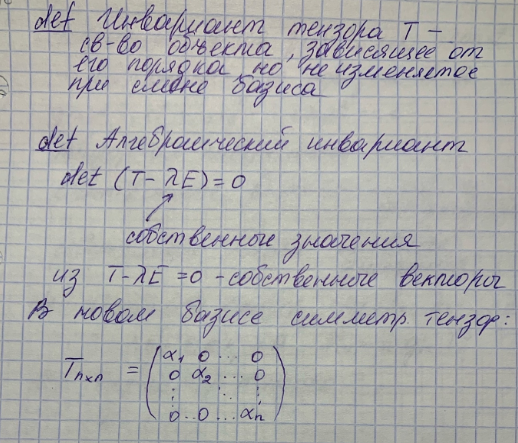 def Инвариант тензора T –
св-во объекта, зависящее от
его порядка но не изменяемое
при смене базиса
def Алгебраический инвариант
det (T - λE) = 0
собственные значения
из T - λE = 0 - собственные векторы
В новом базисе симметр тензор:
T_{n×n} = (α₁ 0 ... 0
0 α₂ ... 0
⋮ ⋮ ⋱ ⋮
0 0 ... αn)